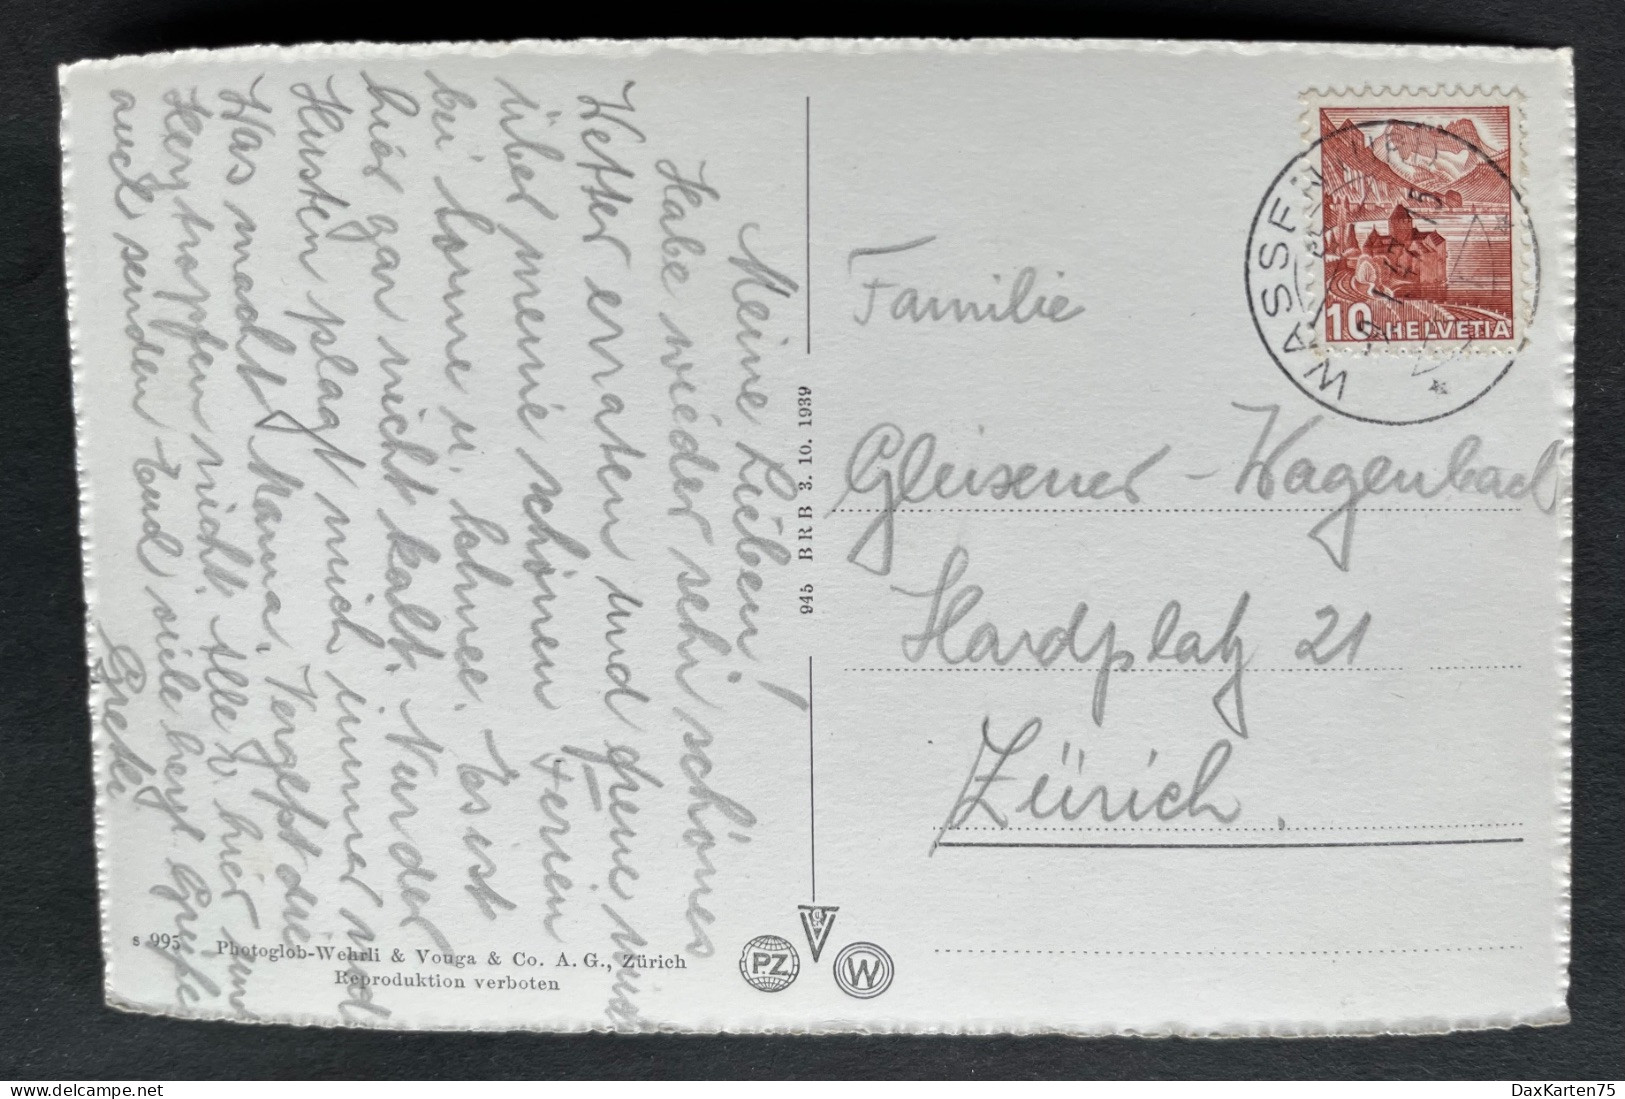 Meine Lieben!
Habe wieder sehr schönes
Wetter erraten und freue mich
über meine schönen Ferien
bei Sonne u. Schnee. Es ist
hier gar nicht kalt. Nur der
Husten plagt mich immer noch
Was macht Mama. Vergesst die
Herztropfen nicht. Alle v. hier
auch senden Euch viele herzl. Grüße
Familie
Gleixner - Wagenbach
Hardplatz 21
Zürich.
945 BRB 3. 10. 1939
s 995
Photoglob-Wehrli & Vouga & Co. A. G., Zürich
Reproduktion verboten
PZ
V
W
10 HELVETIA
WASSERN
DaxKarten75